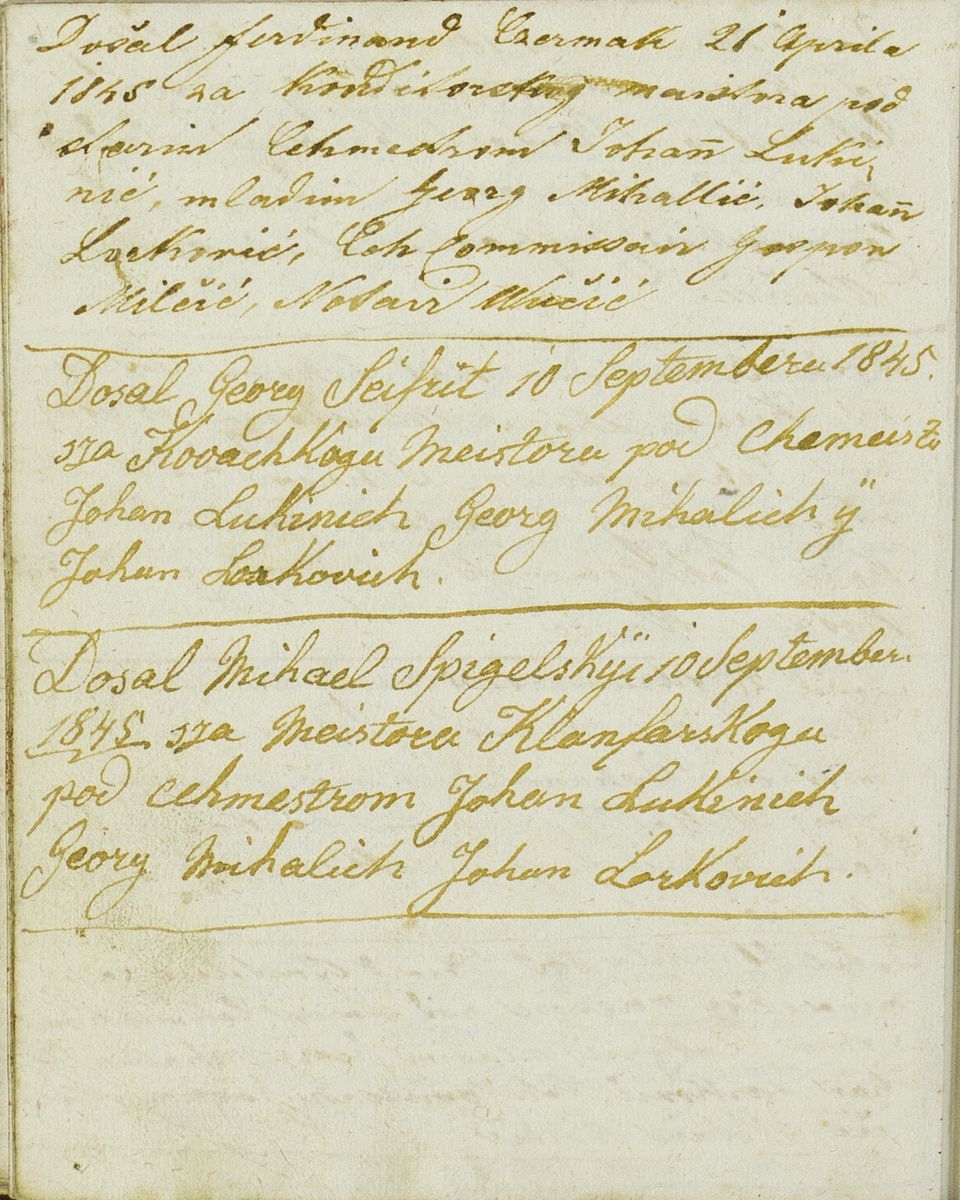 Došal Ferdinand Czermak 21 Aprila
1845 za Konditorskog maistora pod
starim Cehmestrom Johan̄ Luki,
nić, mladim Georg Mihallić, Johan̄
Lorković, Ceh Commissair Gospon
Milčić, Notair
Dosal Georg Seifrit 10 Septembera 1845.
sza Kovachkoga Meistora pod Chemeist
Johan Lukinich Georg Mihalich ÿ
Johan Lorkovich.
Dosal Mihael Spigelskÿi 10 September.
1845. sza Meistora Klanfarskoga
pod Cehmestrom Johan Lukinich
Georg Mihalich Johan Lorkovich.